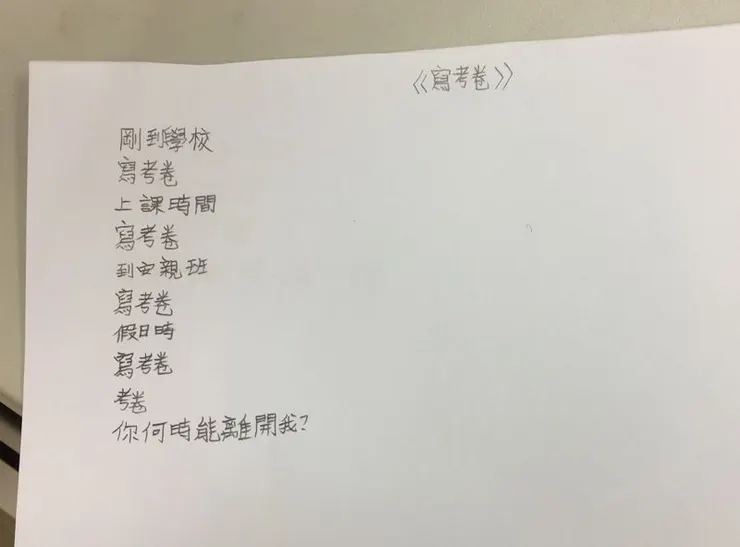 《寫考卷》
剛到學校
寫考卷
上課時間
寫考卷
到安親班
寫考卷
假日時
寫考卷
考卷
你何時能離開我?